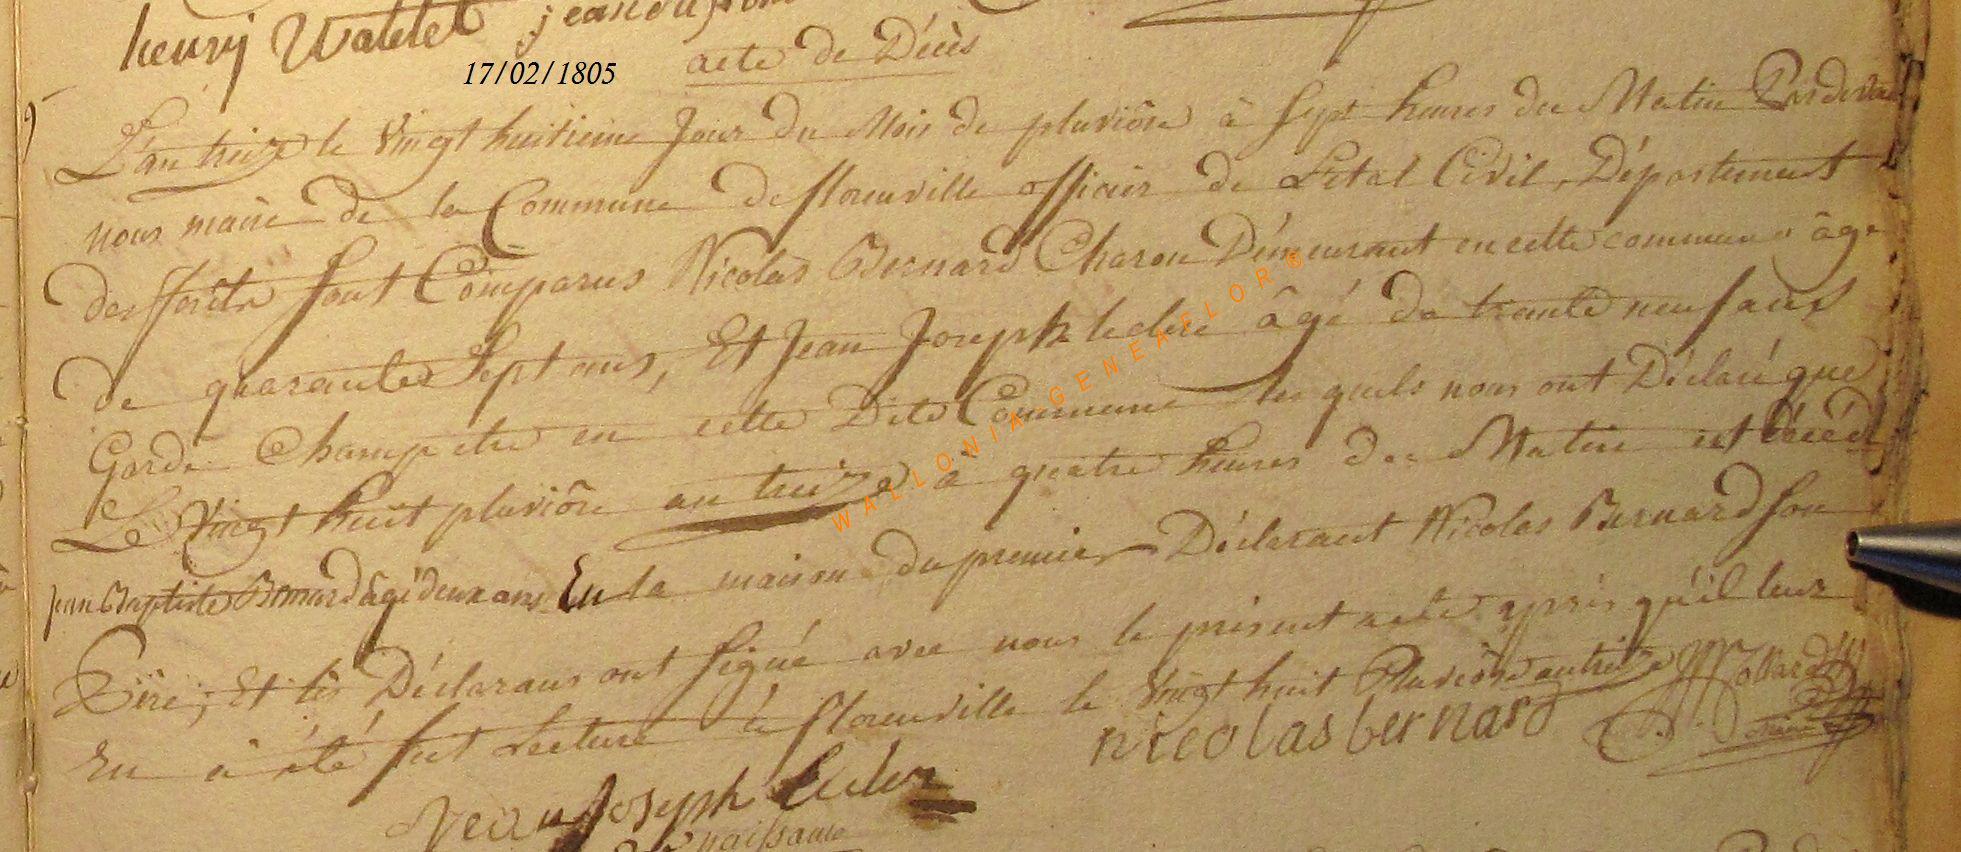 henry Watelet jean dupont
17/02/1805
acte de Décès
L'an treize le vingt huitieme Jour du Mois de pluviôse à Sept heures du Matin Pardevan
nous maire de la Commune de florenville officier de Letat Civil, Département
des forêts sont Comparus Nicolas Bernard Charon Démeurant en cette commune âgé
de quarante Sept ans, Et Jean Joseph leclerc âgé de trante neuf ans
Garde Champetre en cette Dite Commune les quels nous ont Déclaré que
Le Vingt huit pluviôse an treize à quatre heures du Matin est décédé
jean Baptiste Bernard âgé deux ans En la maison du premier Déclarant Nicolas Bernard son
Père, Et les Déclarans ont signé avec nous le présent acte après qu'il leur
En à été fait Lecture à florenville le vingt huit Pluviôse an treize
nicolas bernard
Jean Joseph Lecler
naissance
WALLONIA GENEAFLOR ©